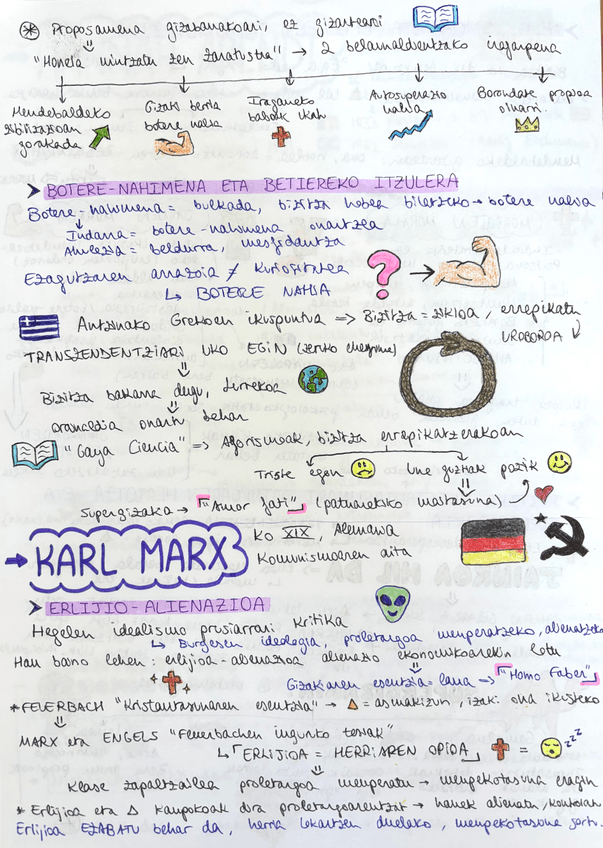 * Proposamena gizabanakoari, ez gizarteari
"Honela mintzatu zen Zaratustra" → 2 belarrialdentzako
Mendebaldeko zibilizazioan gorakada
Gizaki berria botere nahia
Iraganeko baloreak
Autosuperazio nahia
Borondate propioa oinarri.
➤ BOTERE-NAHIMENA ETA BETIEREKO ITZULERA
Botere-nahimena = bulkada, bizitza hobea bilatzeko → botere nahia
Indarra = botere-nahimena onartzea
Ahulezia = beldurra, mesfidantza
Ezagutzaren arrazoia ≠ Kuriositatea
↳ BOTERE NAHIA
? →
Antzinako Grekoen ikuspuntua ⇒ Bizitza = zikloa, errepikatu
UROBOROA
TRANSZENDENTZIARI UKO EGIN
Bizitza bakarra dugu, lurrekoa
onartu behar.
"Gaya Ciencia" ⇒ Aforismoak, bizitza errepikatzerakoan
Triste egon
Une guztiak pozik
Supergizakia → "Amor fati" (patuarekiko maitasuna)
→ KARL MARX
Ko XIX, Alemania
Komunismoaren aita
➤ ERLIJIO-ALIENAZIOA
Hegelen idealismo prusiarrari kritika
↳ Burgesen ideologia, proletargoa menperatzeko, alienatzeko
Hau baino lehen: erlijioa-alienazioa alienazio ekonomikoarekin lotu
Gizakiaren esentzia = lana → "Homo Faber"
* FEUERBACH "Kristautasunaren esentzia" → Δ = asmakizun, izaki ona
MARX eta ENGELS "Feuerbachen inguruko tesiak"
↳ "ERLIJIOA = HERRIAREN OPIOA"
= zzz
Klase zapaltzailea proletargoa menperatu → menpekotasuna eragin
* Erlijioa eta Δ kanpokoak dira proletargoarentzat → hauek alienatu, kontrolatu
Erlijioa EZABATU behar da, herria lokartzen duelako, menpekotasuna sortu.